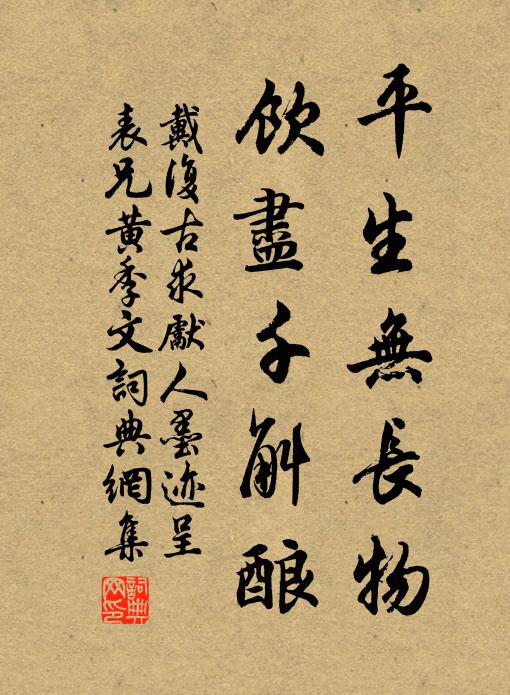 平生無長物
飲盡千斛酿
戴復古求獻人墨迹呈
表兄黄季文詞典網集
詞典网印